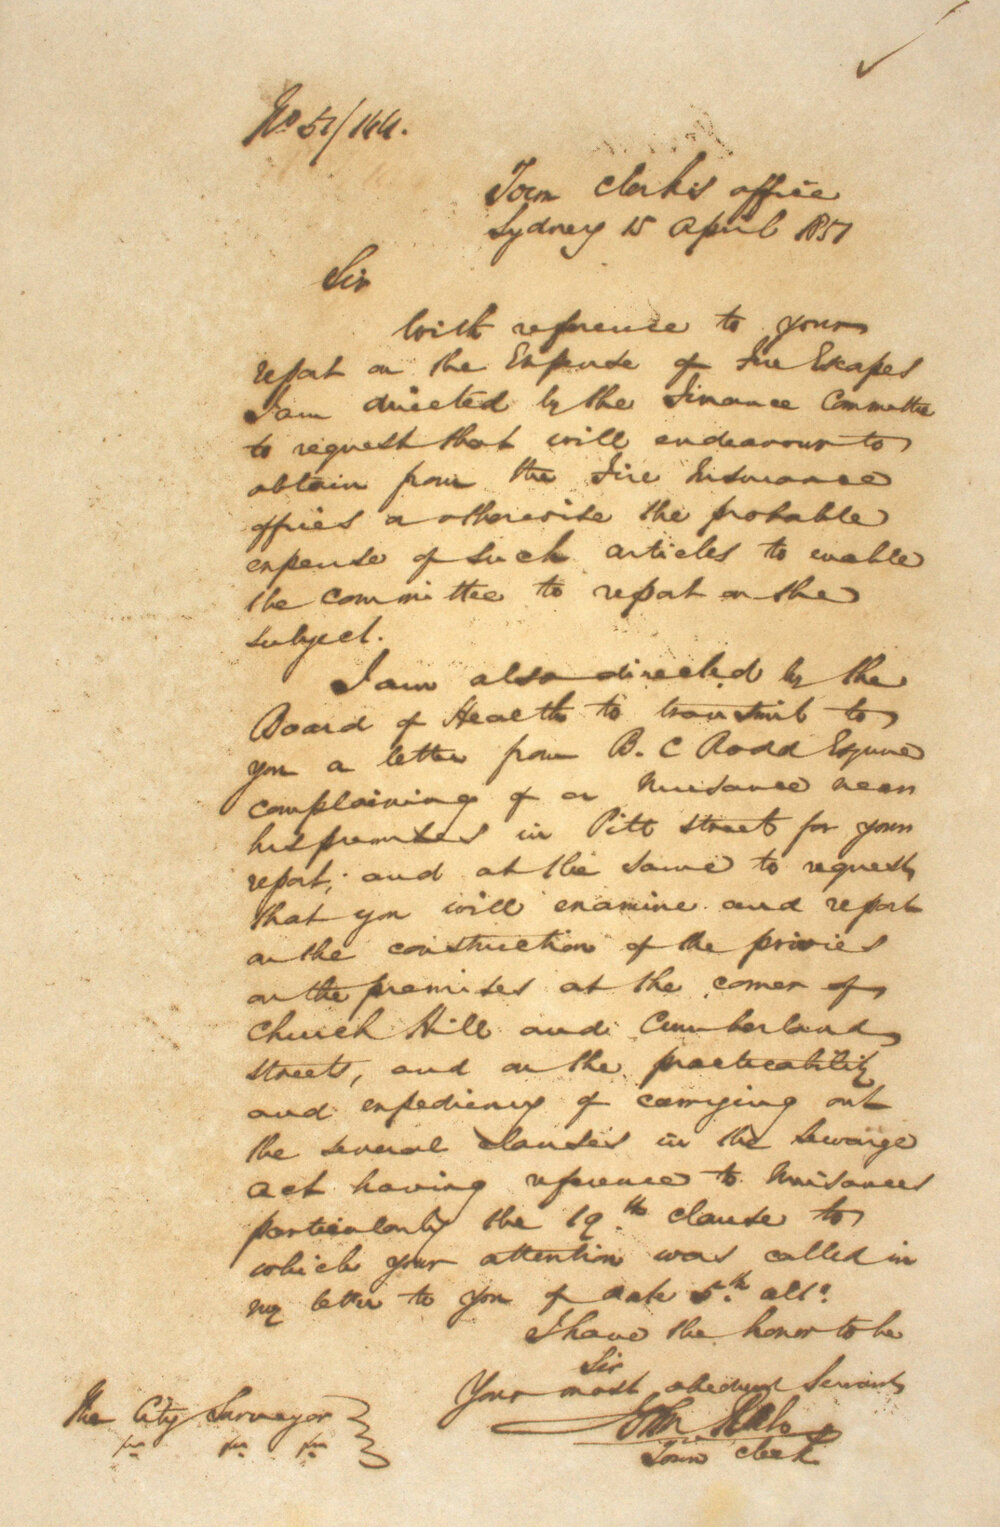 No 51/144.
Town Clerks office
Sydney 15 April 1851
Sir
With reference to your
report on the Expense of Fire Escapes
I am directed by the Finance Committee
to request that will endeavour to
obtain from the Fire Insurance
offices or otherwise the probable
expense of such articles to enable
the committee to report on the
subject.
I am also directed by the
Board of Health to transmit to
you a letter from B. C Rodd Esquire
complaining of a Nuisance near
his premises in Pitt street for your
report; and at the same to request
that you will examine and report
on the construction of the privies
on the premises at the corner of
Church Hill and Cumberland
streets, and on the practicability
and expediency of carrying out
the several clauses in the Sewerage
act having reference to Nuisances
particularly the 19.th clause to
which your attention was called in
my letter to you of date 5.th ulto.
I have the honor to be
Sir
Your most obedient Servant
John
Town Clerk
The City Surveyor